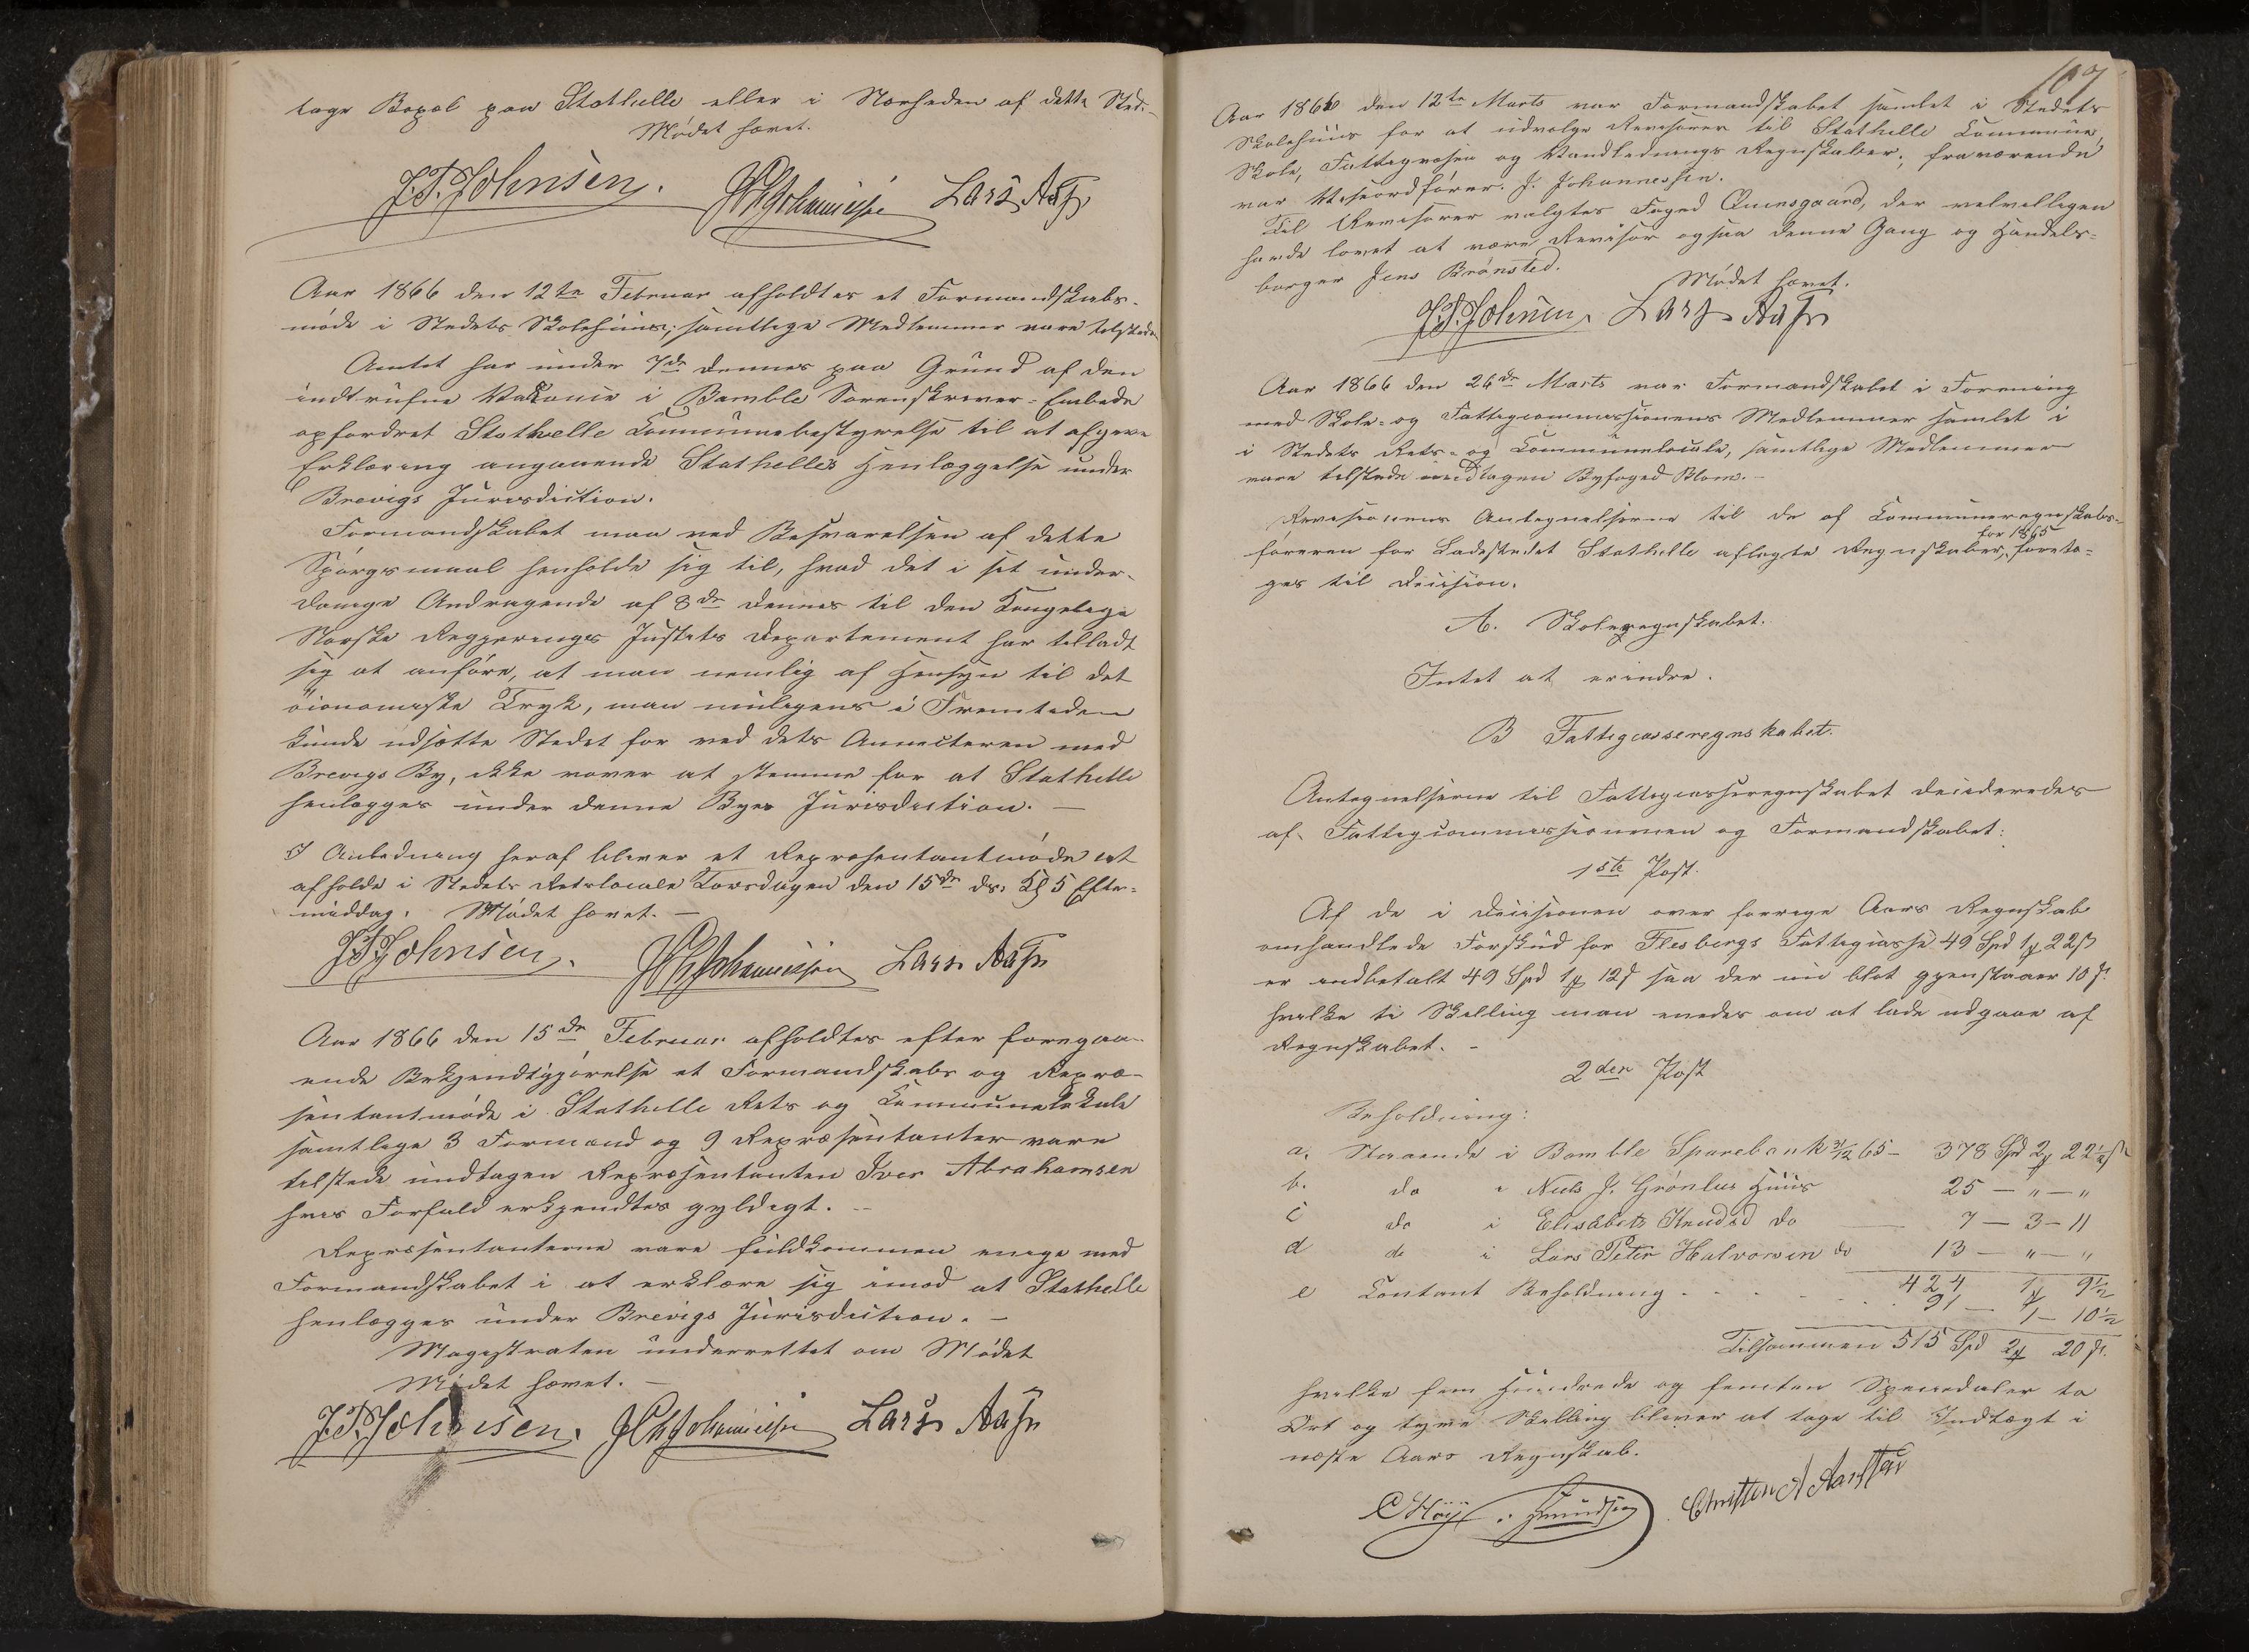 tage Bopæl paa Stathelle eller i Nærheden af dette Sted.
Mødet hævet.
J. T. Johnsen. Lars Aas
Aar 1866 den 12te Februar afholdtes et Formandskabs-
møde i Stedets Skolehuus; samtlige Medlemmer vare tilstede
Amtet har under 7de dennes paa Grund af den
indtrufne Vakance i Bamble Sorenskriver-Embede
opfordret Stathelle Communebestyrelse til at afgive
Erklæring angaaende Stathelles Henlæggelse under
Brevigs Jurisdiction.
Formandskabet maa ved Besvarelsen af dette
Spørgsmaal henholde sig til, hvad det i sit under-
danige Andragende af 8de dennes til den Kongelige
Norske Regjerings Justits Departement har tilladt
sig at anføre, at man nemlig af Hensyn til det
øconomiske Tryk, man muligens i Fremtiden
kunde udsætte Stedet for ved dets Annecteren med
Brevigs By, ikke vover at stemme for at Stathelle
henlægges under denne Byes Jurisdiction. —
I Anledning heraf bliver et Repræsentantmøde at
afholde i Stedets Retslocale Torsdagen den 15de ds. Kl 5 Efter-
middag. Mødet hævet. —
J. T. Johnsen. Lars Aas
Aar 1866 den 15de Februar afholdtes efter foregaa-
ende Bekjendtgjørelse et Formandskabs og Repræ-
sentantmøde i Stathelle Rets og Communelokale
samtlige 3 Formænd og 9 Repræsentanter vare
tilstede undtagen Repræsentanten Iver Abrahamsen
hvis Forfald erkjendtes gyldigt. —
Repræsentanterne vare fuldkommen enige med
Formandskabet i at erklære sig imod at Stathelle
henlægges under Brevigs Jurisdiction. —
Magistraten underrettet om Mødet
Mødet hævet. —
J. T. Johnsen. Lars Aas
107
Aar 1866 den 12te Marts var Formandskabet samlet i Stedets
Skolehuus for at udvælge Revisorer til Stathelle Commune,
Skole, Fattigvæsen og Vandlednings Regnskaber; fraværende
var Viseordfører J. Johannessen.
Til Revisorer valgtes Foged Quensgaard, der velvilligen
havde lovet at være Revisor ogsaa denne Gang og Handels-
borger Jens Brønsted.
Mødet hævet.
J. T. Johnsen. Lars Aas
Aar 1866 den 26de Marts var Formandskabet i Forening
med Skole- og Fattigcommissionens Medlemmer samlet i
i Stedets Rets- og Communelocale, samtlige Medlemmer
vare tilstede undtagen Byfoged Blom. —
Revisionens Antegnelserne til de af Communeregnskabs-
føreren for Ladestedet Stathelle aflagte Regnskaber for 1865, foreto-
ges til Decision.
A. Skoleregnskabet.
Intet at erindre.
B Fattigcasseregnskabet.
Antegnelserne til Fattigcasseregnskabet decideredes
af Fattigcommissionen og Formandskabet:
1ste Post.
Af de i Decisionen over forrige Aars Regnskab
omhandlede Forskud for Flesbergs Fattigcasse 49 Spd 1 22 ß
er indbetalt 49 Spd 1 12 ß saa der nu blot gjenstaaer 10 ß.
hvilke ti Skilling man enedes om at lade udgaae af
Regnskabet. —
2den Post
Beholdning:
a. Staaende i Bamble Sparebank 31/12 65 — 378 Spd 2 22½ ß
b. do i Niels J. Grønlus Huus 25 — " — "
c do i Elisabeth Knudsd do — 7 — 3 — 11
d do i Lars Peter Halvorsen do 13 — " — "
424 1 9½
e Contant Beholdning . . . . . 91 — 1 — 10½
Tilsammen 515 Spd 2 20 ß.
hvilke fem Hundrede og femten Speciedaler to
Ort og tyve Skilling bliver at tage til Indtægt i
næste Aars Regnskab.